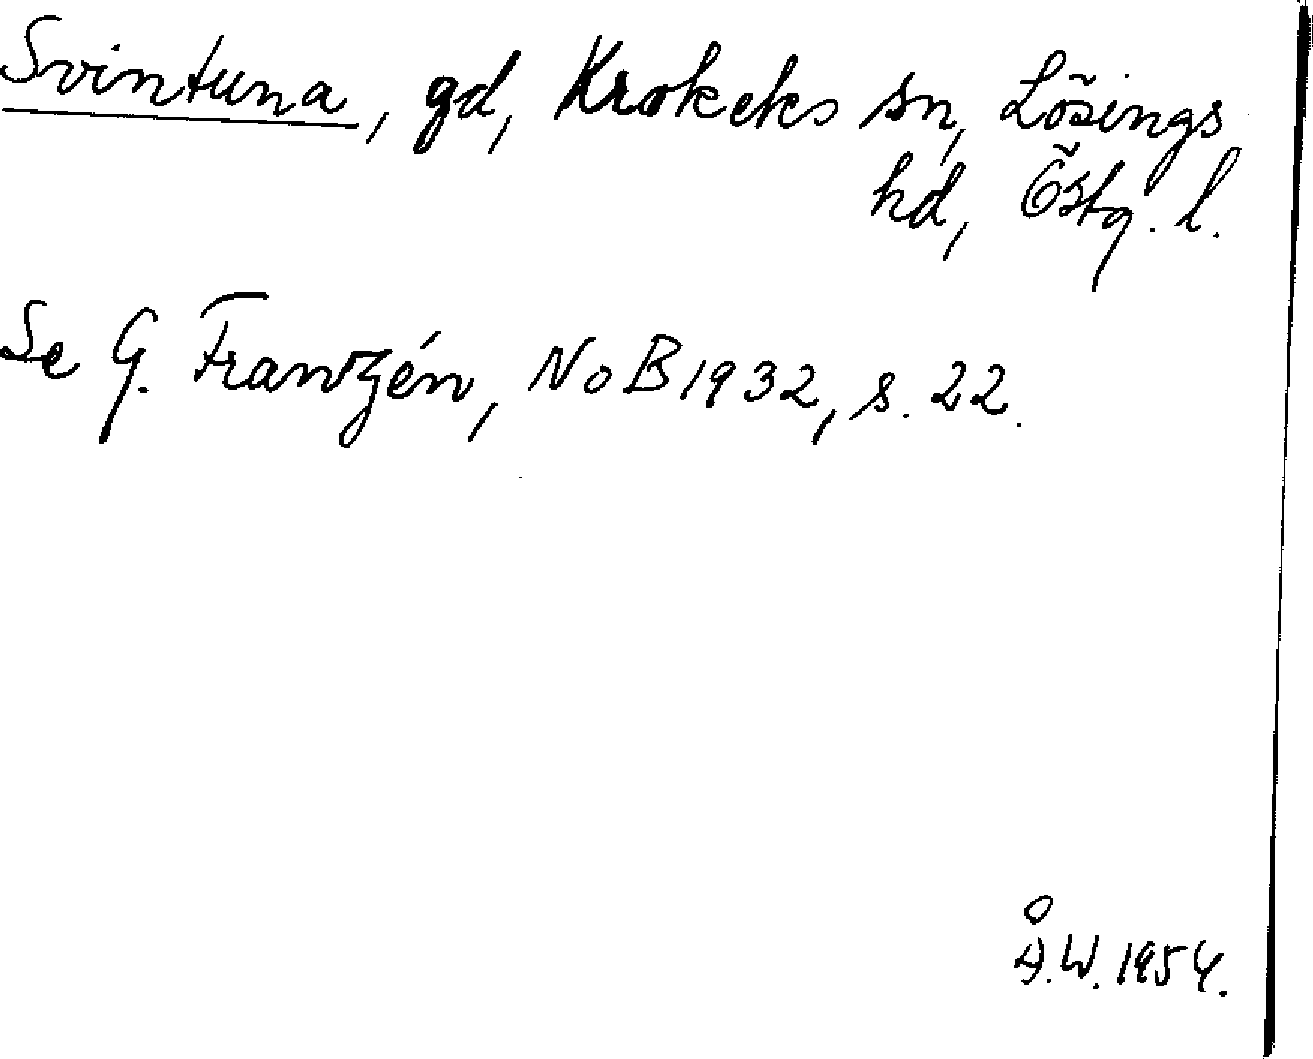 Svintuna, gd, Krokeks sn, Lösings
hd, Östg. l.
Se G. Franzén, NoB 1932, s. 22.
Å.W. 1954.